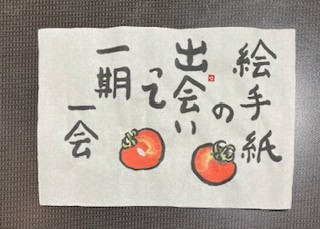 絵手紙
の
出会い
って
一期
一会